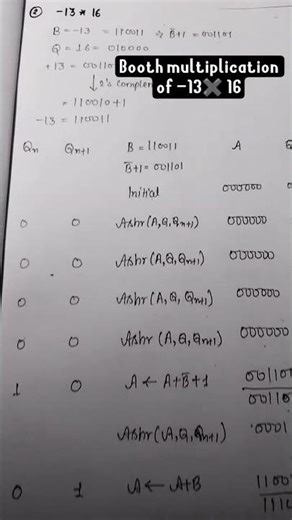 ② -13 * 16
B = -13 = 110011 ∴ B̅+1 = 001101
Q = 16 = 010000
+13 = 0011
Booth multiplication
of -13✖️ 16
↓ 2's complem
= 110010+1
-13 = 110011
Qn Qn+1 B = 110011 A Q
B̅+1 = 001101
Initial 000000
0 0 Ashr(A,Q,Qn+1) 000000
0 0 Ashr(A,Q,Qn+1) 000000
0 0 Ashr(A,Q,Qn+1) 000000
0 0 Ashr(A,Q,Qn+1) 000000
1 0 A ← A+B̅+1 001101
00110
Ashr(A,Q,Qn+1) 0001
0 1 A ← A+B 1100
111